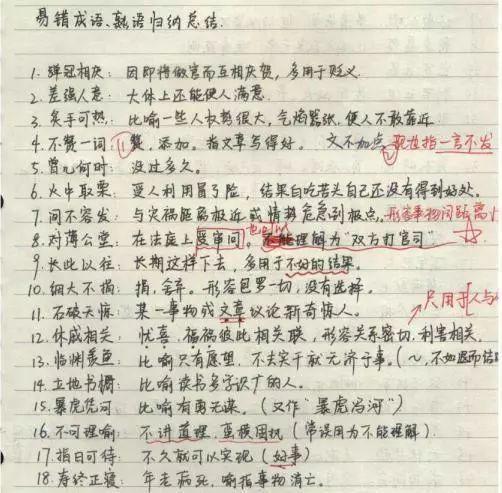 易错成语、熟语归纳总结.
1. 弹冠相庆: 因即将做官而互相庆贺, 多用于贬义.
2. 差强人意: 大体上还能使人满意.
3. 炙手可热: 比喻一些人权势很大, 气焰嚣张, 使人不敢靠近
4. 不赞一词: ①赞, 添加。指文章写得好。 文不加点 ②现也指一言不发
5. 曾几何时: 没过多久。
6. 火中取栗: 受人利用冒了险, 结果白吃苦头自己还没有得到好处。
7. 间不容发: 与灾祸距离极近或情势危急到极点. 形容事物间距离
8. 对薄公堂: 在法庭上受审问。 理解为“双方打官司”
9. 长此以往: 长期这样下去, 多用于不好的结果。
10. 细大不捐: 捐, 舍弃。形容包罗一切, 没有选择。
11. 石破天惊: 某一事物或文章议论新奇惊人。
只用于人与
12. 休戚相关: 忧喜、福祸彼此相关联, 形容关系密切, 利害相关.
13. 临渊羡鱼: 比喻只有愿望, 不去实干就无济于事。(~, 不如退而结
14. 立地书橱: 比喻读书多学识广的人。
15. 暴虎凭河: 比喻有勇无谋。(又作“暴虎冯河”)
16. 不可理喻: 不讲道理, 蛮横固执 (常误用为不能理解).
17. 指日可待: 不久就可以实现 (好事)
18. 寿终正寝: 年老病死, 喻指事物消亡。